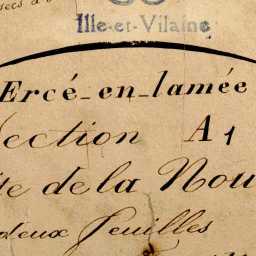 Ille-et-Vilaine
Ercé-en-lamée
Section A1
de la Nou
deux feuilles